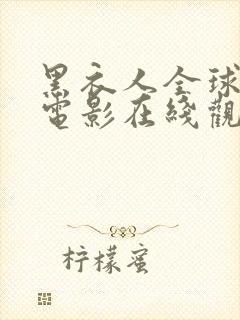 黑衣人全球
電影在綫觀
柠檬蜜